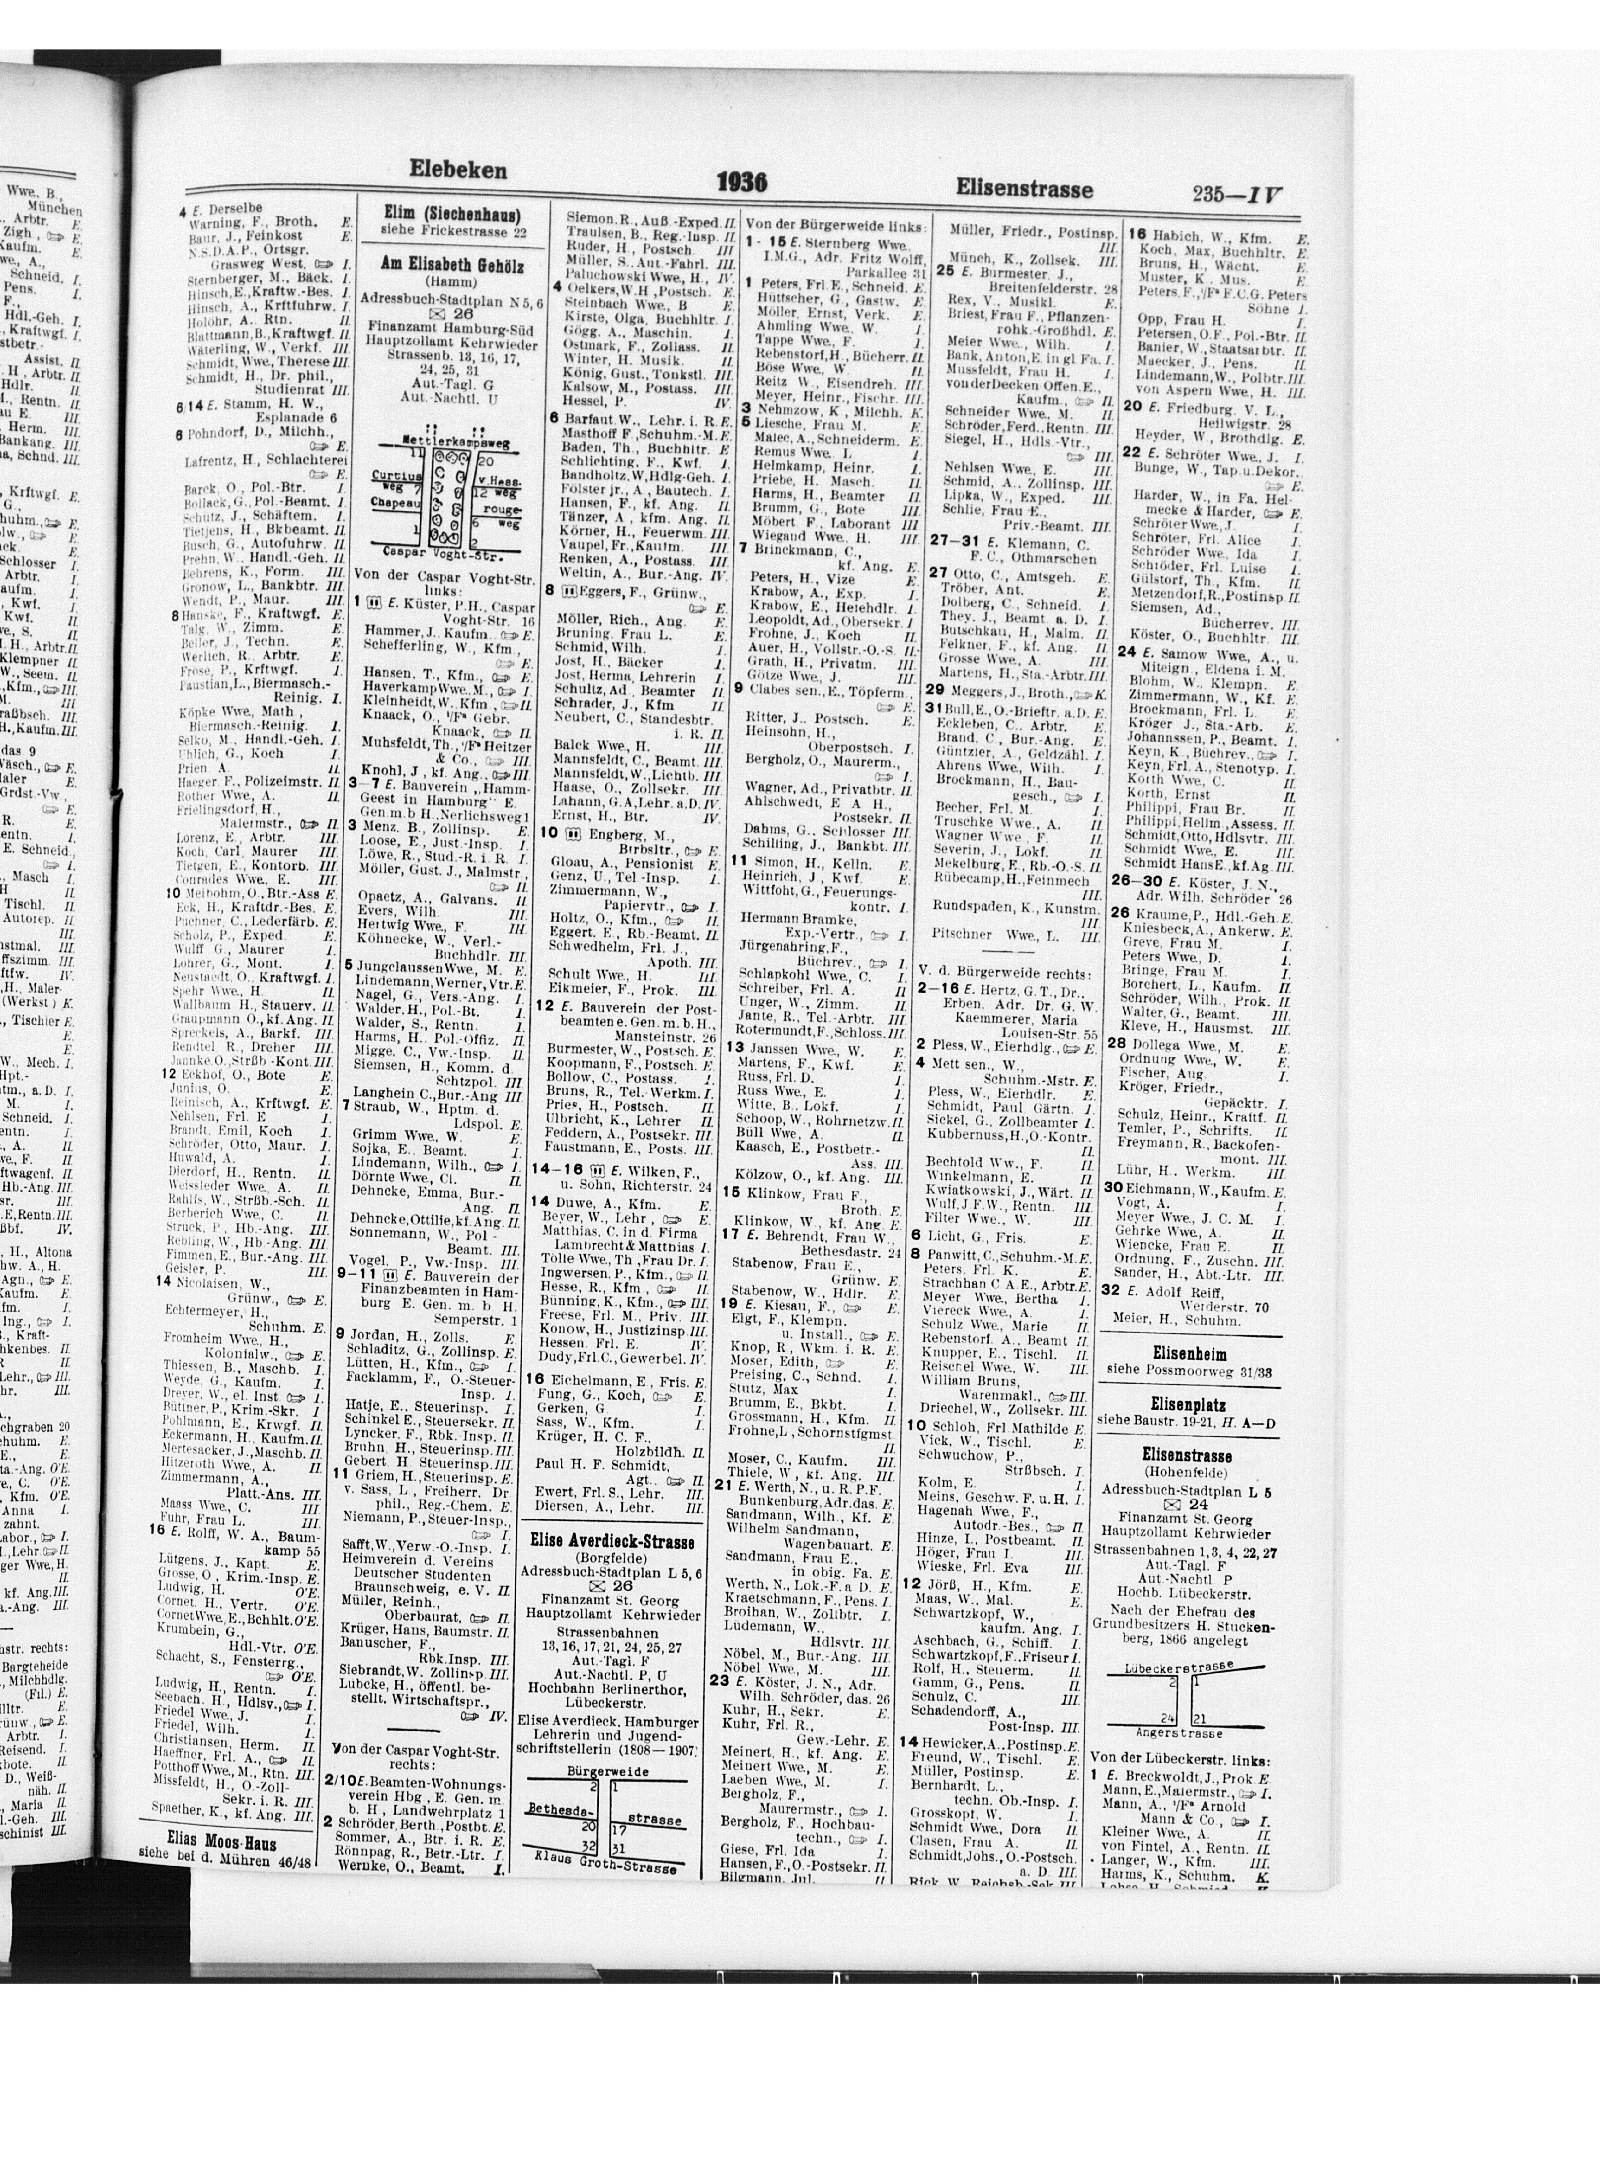 Elebeken
1936
Elisenstrasse
235—IV
4 E. Derselbe
Warning, F., Broth. E.
Baur, J., Feinkost E.
N.S.D.A.P., Ortsgr.
Grasweg West, I.
Sternberger, M., Bäck. I.
Hinsch, E., Kraftw.-Bes. I.
Hinsch, A., Krftfuhrw. I.
Holöhr, A., Rtn. II.
Blattmann, B., Kraftwgf. II.
Wäterling, W., Verkf. III.
Schmidt, Wwe., Therese III.
Schmidt, H., Dr. phil.,
Studienrat III.
6/14 E. Stamm, H. W.,
Esplanade 6
6 Pohndorf, D., Milchh.,
E.
Lafrentz, H., Schlachterei
E.
Barck, O., Pol.-Btr. I.
Bollack, G., Pol.-Beamt. I.
Schütz, J., Schäftem. I.
Tietjens, H., Bkbeamt. II.
Busch, G., Autofuhrw. II.
Prehn, W., Handl.-Geh. II.
Behrens, K., Form. III.
Gronow, L., Bankbtr. III.
Wendt, P., Maur. III.
8 Hanske, F., Kraftwgf. E.
Talg, W., Zimm. E.
Beller, J., Techn. E.
Werlich, R., Arbtr. E.
Fröse, P., Krftwgf. I.
Faustian, L., Biermasch.-
Reinig. I.
Köpke Wwe., Math.,
Biermasch.-Reinig. I.
Selko, M., Handl.-Geh. I.
Uhlich, G., Koch I.
Prien, A. II.
Haeger, F., Polizeimstr. II.
Rother Wwe., A. II.
Frielingsdorf, H.,
Malermstr., II.
Lorenz, E., Arbtr. III.
Koch, Carl, Maurer III.
Tietgen, E., Kontorb. III.
Conrades Wwe., E. III.
10 Meibohm, O., Btr.-Ass E.
Eck, H., Kraftdr.-Bes. E.
Puchner, C., Lederfärb. E.
Scholz, P., Exped. E.
Wulff, G., Maurer I.
Lohrer, G., Mont. I.
Neustaedt, O., Kraftwgf. I.
Spehr Wwe., H. II.
Wallbaum, H., Stauerv. II.
Graupmann, O., kf. Ang. II.
Spreckels, A., Barkf. III.
Rendtel, R., Dreher III.
Jannke, O., Strßb.-Kont. III.
12 Eckhof, O., Bote E.
Junius, O. E.
Reinisch, A., Krftwgf. E.
Nehlsen, Frl. E. I.
Brandt, Emil, Koch I.
Schröder, Otto, Maur. I.
Huwald, A. I.
Dierdorf, H., Rentn. II.
Weissleder Wwe., A. II.
Rahlfs, W., Strßb.-Sch. II.
Berberich Wwe., C. II.
Struck, P., Hb.-Ang. III.
Rebling, W., Hb.-Ang. III.
Fimmen, E., Bur.-Ang. III.
Geisler, P. III.
14 Nicolaisen, W.,
Grünw., E.
Echtermeyer, H.,
Schuhm. E.
Fromheim Wwe., H.,
Kolonialw., E.
Thiessen, B., Maschb. I.
Weyde, G., Kaufm. I.
Dreyer, W., el. Inst. I.
Büttner, P., Krim.-Skr. I.
Pohlmann, E., Krwgf. II.
Eckermann, H., Kaufm. II.
Mertesacker, J., Maschb. II.
Hitzeroth Wwe., A. II.
Zimmermann, A.,
Platt.-Ans. III.
Maass Wwe., C. III.
Fuhr, Frau L. III.
16 E. Rolff, W. A., Baum-
kamp 55
Lütgens, J., Kapt. E.
Grosse, O., Krim.-Insp. E.
Ludwig, H. O'E.
Cornet, H., Vertr. O'E.
Cornet Wwe., E., Bchhlt. O'E.
Krumbein, G.,
Hdl.-Vtr. O'E.
Schacht, S., Fensterrg.,
O'E.
Ludwig, H., Rentn. I.
Seebach, H., Hdlsv., I.
Friedel Wwe., J. I.
Friedel, Wilh. I.
Christiansen, Herm. II.
Haeffner, Frl. A., II.
Potthoff Wwe., M., Rtn. III.
Missfeldt, H., O.-Zoll-
Sekr. i. R. III.
Spaether, K., kf. Ang. III.
Elias Moos-Haus
siehe bei d. Mühren 46/48
Elim (Siechenhaus)
siehe Frickestrasse 22
Am Elisabeth Gehölz
(Hamm)
Adressbuch-Stadtplan N 5, 6
26
Finanzamt Hamburg-Süd
Hauptzollamt Kehrwieder
Strassenb. 13, 16, 17,
24, 25, 31
Aut.-Tagl. G
Aut.-Nachtl. U
Mettlerkampsweg
11 20
Curtius v. Hess.
weg 7 12 weg
Chapeau rouge-
6 weg
1 2
Caspar Voght-Str.
Von der Caspar Voght-Str.
links:
1 E. Küster, P.H., Caspar
Voght-Str. 16
Hammer, J., Kaufm. E.
Schefferling, W., Kfm.,
E.
Hansen, T., Kfm., E.
Haverkamp Wwe., M., I.
Kleinheidt, W., Kfm., II.
Knaack, O., i/Fa Gebr.
Knaack, II.
Muhsfeldt, Th., i/Fa Heitzer
& Co., III.
Knohl, J., kf. Ang., III.
3–7 E. Bauverein „Hamm-
Geest in Hamburg" E.
Gen. m. b H., Nerlichsweg 1
3 Menz, B., Zollinsp. E.
Loose, E., Just.-Insp. I.
Löwe, R., Stud.-R. i. R. I.
Möller, Gust. J., Malmstr.,
II.
Opaetz, A., Galvans. II.
Evers, Wilh. III.
Hertwig Wwe., F. III.
Köhnecke, W., Verl.-
Buchhdlr. III.
5 Jungclaussen Wwe., M. E.
Lindemann, Werner, Vtr. E.
Nagel, G., Vers.-Ang. I.
Walder, H., Pol.-Bt. I.
Walder, S., Rentn. I.
Harms, H., Pol.-Offiz. II.
Migge, C., Vw.-Insp. II.
Siemsen, H., Komm. d.
Schtzpol. III.
Langhein C., Bur.-Ang III.
7 Straub, W., Hptm. d.
Ldspol. E.
Grimm Wwe., W. E.
Sojka, E., Beamt. I.
Lindemann, Wilh., I.
Dörnte Wwe., Cl. II.
Dehncke, Emma, Bur.-
Ang. II.
Dehncke, Ottilie, kf. Ang. II.
Sonnemann, W., Pol.-
Beamt. III.
Vogel, P., Vw.-Insp. III.
9–11 E. Bauverein der
Finanzbeamten in Ham-
burg E. Gen. m. b H.
Semperstr. 1
9 Jordan, H., Zolls. E.
Schladitz, G., Zollinsp. E.
Lütten, H., Kfm., I.
Facklamm, F., O.-Steuer-
Insp. I.
Hatje, E., Steuerinsp. I.
Schinkel E., Steuersekr. II.
Lyncker, F., Rbk. Insp. II.
Bruhn, H., Steuerinsp. III.
Gebert, H. Steuerinsp. III.
11 Griem, H., Steuerinsp. E.
v. Sass, L., Freiherr, Dr
phil., Reg.-Chem. E.
Niemann, P., Steuer-Insp.,
I.
Safft, W., Verw.-O.-Insp. I.
Heimverein d. Vereins
Deutscher Studenten
Braunschweig, e. V. II.
Müller, Reinh.,
Oberbaurat, II.
Krüger, Hans, Baumstr. II.
Banuscher, F.,
Rbk.Insp. III.
Siebrandt, W. Zollinsp. III.
Lubcke, H., öffentl. be-
stellt. Wirtschaftspr.,
IV.
Von der Caspar Voght-Str.
rechts:
2/10 E. Beamten-Wohnungs-
verein Hbg., E. Gen. m.
b. H., Landwehrplatz 1
2 Schröder, Berth., Postbt. E.
Sommer, A., Btr. i. R. E.
Rönnpag, R., Betr.-Ltr. I.
Wernke, O., Beamt. I.
Siemon, R., Auß.-Exped. II.
Traulsen, B., Reg.-Insp. II.
Ruder, H., Postsch. III.
Müller, S., Aut.-Fahrl. III.
Paluchowski Wwe., H., IV.
4 Oelkers, W.H., Postsch. E.
Steinbach Wwe., B. E.
Kirste, Olga, Buchhltr. I.
Gögg, A., Maschin. I.
Ostmark, F., Zollass. II.
Winter, H. Musik. II.
König, Gust., Tonkstl. III.
Kalsow, M., Postass. III.
Hessel, P. IV.
6 Barfaut, W., Lehr. i. R. E.
Masthoff F., Schuhm.-M. E.
Baden, Th., Buchhltr. E.
Schlichting, F., Kwf. I.
Bandholtz, W., Hdlg-Geh. I.
Fölster jr., A., Bautech. I.
Hansen, F., kf. Ang. II.
Tänzer, A., kfm. Ang. II.
Körner, H., Feuerwm. III.
Vaupel, Fr., Kaufm. III.
Renken, A., Postass. III.
Weltin, A., Bur.-Ang. IV.
8 Eggers, F., Grünw.,
E.
Möller, Rich., Ang. E.
Bruning, Frau L. E.
Schmid, Wilh. I.
Jost, H., Bäcker I.
Jost, Herma, Lehrerin I.
Schultz, Ad., Beamter II.
Schrader, J., Kfm II.
Neubert, C., Standesbtr.
i. R. II.
Balck Wwe., H. III.
Mannsfeldt, C., Beamt. III.
Mannsfeldt, W., Lichtb. III.
Haase, O., Zollsekr. III.
Lahann, G.A., Lehr. a.D. IV.
Ernst, H., Btr. IV.
10 Engberg, M.,
Btrbsltr., E.
Gloau, A., Pensionist E.
Genz, U., Tel.-Insp. I.
Zimmermann, W.,
Papiervtr., I.
Holtz, O., Kfm., II.
Eggert, E., Rb.-Beamt. II.
Schwedhelm, Frl. J.,
Apoth. III.
Schult Wwe., H. III.
Eikmeier, F., Prok. III.
12 E. Bauverein der Post-
beamten e. Gen. m. b. H.,
Mansteinstr. 26
Burmester, W., Postsch. E.
Koopmann, F., Postsch. E.
Bollow, C., Postass. I.
Bruns, R., Tel.-Werkm. I.
Pries, H., Postsch. II.
Ulbricht, K., Lehrer II.
Feddern, A., Postsekr. III.
Faustmann, E., Posts. III.
14–16 E. Wilken, F.,
u. Sohn, Richterstr. 24
14 Duwe, A., Kfm. E.
Beyer, W., Lehr., E.
Matthias, C. in d. Firma
Lambrecht & Matthias I.
Tölle Wwe., Th., Frau Dr. I.
Ingwersen, P., Kfm., II.
Hesse, R., Kfm., II.
Bünning, K., Kfm., III.
Freese, Frl. M., Priv. III.
Konow, H., Justizinsp. III.
Hessen, Frl. E. IV.
Dudy, Frl. C., Gewerbel. IV.
16 Eichelmann, E., Fris. E.
Fung, G., Koch, E.
Gerken, G. I.
Sass, W., Kfm. I.
Krüger, H. C. F.,
Holzbildh. II.
Paul H. F. Schmidt,
Agt., II.
Ewert, Frl. S., Lehr. III.
Diersen, A., Lehr. III.
Elise Averdieck-Strasse
(Borgfelde)
Adressbuch-Stadtplan L 5, 6
26
Finanzamt St. Georg
Hauptzollamt Kehrwieder
Strassenbahnen
13, 16, 17, 21, 24, 25, 27
Aut.-Tagl. F
Aut.-Nachtl. P, U
Hochbahn Berlinerthor,
Lübeckerstr.
Elise Averdieck, Hamburger
Lehrerin und Jugend-
schriftstellerin (1808—1907)
Bürgerweide
2 1
Bethesda- strasse
20 17
32 31
Klaus Groth-Strasse
Von der Bürgerweide links:
1 - 15 E. Sternberg Wwe.
I.M.G., Adr. Fritz Wolff,
Parkallee 31
1 Peters, Frl. E., Schneid. E.
Hüttscher, G., Gastw. E.
Möller, Ernst, Verk. E.
Ahmling Wwe., W. I.
Tappe Wwe., F. I.
Rebenstorf, H., Bücherr. II.
Böse Wwe., W. II.
Reitz W., Eisendreh. III.
Meyer, Heinr., Fischr. III.
3 Nehmzow, K., Milchh. K.
5 Liesche, Frau M. E.
Malec, A., Schneiderm. E.
Remus Wwe. L. I.
Helmkamp, Heinr. I.
Priebe, H. Masch. II.
Harms, H., Beamter II.
Brumm, G., Bote III.
Möbert, F., Laborant III.
Wiegand Wwe., H. III.
7 Brinckmann, C.,
kf. Ang. E.
Peters, H., Vize E.
Krabow, A., Exp. I.
Krabow, E., Hefehdlr. I.
Leopoldt, Ad., Obersekr. I.
Frohne, J., Koch II.
Auer, H., Vollstr.-O.-S. II.
Grath, H., Privatm. III.
Götze Wwe., J. III.
9 Clabes sen., E., Töpferm.,
E.
Ritter, J., Postsch. E.
Heinsohn, H.,
Oberpostsch. I.
Bergholz, O., Maurerm.,
I.
Wagner, Ad., Privatbtr. II.
Ahlschwedt, E. A. H.,
Postsekr. II.
Dahms, G., Schlosser III.
Schilling, J., Bankbt. III.
11 Simon, H., Kelln. E.
Heinrich, J., Kwf. E.
Wittfoht, G., Feuerungs-
kontr. I.
Hermann Bramke,
Exp.-Vertr., I.
Jürgenahring, F.,
Büchrev., I.
Schlapkohl Wwe., C. I.
Schreiber, Frl. A. II.
Unger, W., Zimm. II.
Jante, R., Tel.-Arbtr. III.
Rotermundt, F., Schloss. III.
13 Janssen Wwe., W. E.
Martens, F., Kwf. E.
Russ, Frl. D. I.
Russ Wwe., E. I.
Witte, B., Lokf. I.
Schoop, W., Rohrnetzw. II.
Büll Wwe., A. II.
Kaasch, E., Postbetr.-
Ass. III.
Kölzow, O., kf. Ang. III.
15 Klinkow, Frau F.,
Broth. E.
Klinkow, W., kf. Ang. E.
17 E. Behrendt, Frau W.,
Bethesdastr. 24
Stabenow, Frau E.,
Grünw. E.
Stabenow, W., Hdlr. E.
19 E. Kiesau, F., E.
Elgt, F., Klempn.
u. Install., E.
Knop, R., Wkm. i. R. E.
Moser, Edith, E.
Preising, C., Schnd. I.
Stutz, Max I.
Brumm, E., Bkbt. I.
Grossmann, H., Kfm. II.
Frohne, L., Schornstfgmst.
II.
Moser, C., Kaufm. III.
Thiele, W., kf. Ang. III.
21 E. Werth, N., u. R. P. F.
Bunkenburg, Adr. das. E.
Sandmann, Wilh., Kf. E.
Wilhelm Sandmann,
Wagenbauart. E.
Sandmann, Frau E.,
in obig. Fa. E.
Werth, N., Lok.-F. a D. E.
Kraetschmann, F., Pens. I.
Broihan, W., Zollbtr. I.
Lüdemann, W.,
Hdlsvtr. III.
Nöbel, M., Bur.-Ang. III.
Nöbel Wwe., M. III.
23 E. Köster, J. N., Adr.
Wilh. Schröder, das. 26
Kuhr, H., Sekr. E.
Kuhr, Frl. R.,
Gew.-Lehr. E.
Meinert, H., kf. Ang. E.
Meinert Wwe., M. E.
Laeben Wwe., M. I.
Bergholz, F.,
Maurermstr., I.
Bergholz, F., Hochbau-
techn., I.
Giese, Frl. Ida I.
Hansen, F., O.-Postsekr. II.
Bilgmann, Jul. II.
Müller, Friedr., Postinsp.
III.
Münch, K., Zollsek. III.
25 E. Burmester, J.,
Breitenfelderstr. 28
Rex, V., Musikl. E.
Briest, Frau F., Pflanzen-
rohk.-Großhdl. E.
Meier Wwe., Wilh. I.
Bank, Anton, E. in gl. Fa. I.
Mussfeldt, Frau H. I.
von der Decken Offen, E.,
Kaufm., II.
Schneider Wwe., M. II.
Schröder, Ferd., Rentn. III.
Siegel, H., Hdls.-Vtr.,
III.
Nehlsen Wwe., E. III.
Schmid, A., Zollinsp. III.
Lipka, W., Exped. III.
Schlie, Frau E.,
Priv.-Beamt. III.
27–31 E. Klemann, C.
F. C., Othmarschen
27 Otto, C., Amtsgeh. E.
Tröber, Ant. E.
Dolberg, C., Schneid. I.
They, J., Beamt. a. D. I.
Butschkau, H., Malm. II.
Felkner, F., kf. Ang. II.
Grosse Wwe., A. III.
Martens, H., Sta.-Arbtr. III.
29 Meggers, J., Broth., K.
31 Bull, E., O.-Brieftr. a.D. E.
Eckleben, C., Arbtr. E.
Brand, C., Bur.-Ang. E.
Güntzler, A., Geldzähl. I.
Ahrens Wwe., Wilh. I.
Brockmann, H., Bau-
gesch., I.
Becher, Frl. M. I.
Truschke Wwe., A. II.
Wagner Wwe., F. II.
Severin, J., Lokf. II.
Mekelburg, E., Rb.-O.-S. II.
Rübecamp, H., Feinmech
III.
Rundspaden, K., Kunstm.
III.
Pitschner Wwe., L. III.
V. d. Bürgerweide rechts:
2–16 E. Hertz, G. T., Dr.,
Erben, Adr. Dr. G. W.
Kaemmerer, Maria
Louisen-Str. 55
2 Pless, W., Eierhdlg., E.
4 Mett sen., W.,
Schuhm.-Mstr. E.
Pless, W., Eierhdlr. E.
Schmidt, Paul, Gärtn. I.
Sickel, G., Zollbeamter I.
Kubbernuss, H., O.-Kontr.
II.
Bechtold Ww., F. II.
Winkelmann, E. II.
Kwiatkowski, J., Wärt. II.
Wulf, J. F. W., Rentn. III.
Filter Wwe., W. III.
6 Licht, G., Fris. E.
8 Panwitt, C., Schuhm.-M. E.
Peters, Frl. K. E.
Strachhan C. A. E., Arbtr. E.
Meyer Wwe., Bertha I.
Viereck Wwe., A. I.
Schulz Wwe., Marie II.
Rebenstorf, A., Beamt II.
Knupper, E., Tischl. II.
Reischel Wwe., W. III.
William Bruns,
Warenmakl., III.
Driechel, W., Zollsekr. III.
10 Schloh, Frl. Mathilde E.
Vick, W., Tischl. E.
Schwuchow, P.,
Strßbsch. I.
Kolm, E. I.
Meins, Geschw. F. u. H. I.
Hagenah Wwe., F.,
Autodr.-Bes., II.
Hinze, I., Postbeamt. II.
Höger, Frau I. III.
Wieske, Frl. Eva III.
12 Jörß, H., Kfm. E.
Maas, W., Mal. E.
Schwartzkopf, W.,
kaufm. Ang. I.
Aschbach, G., Schiff. I.
Schwartzkopf, F., Friseur I.
Rolf, H., Steuerm. II.
Gamm, G., Pens. II.
Schulz, C. III.
Schadendorff, A.,
Post-Insp. III.
14 Hewicker, A., Postinsp. E.
Freund, W., Tischl. E.
Müller, Postinsp. E.
Bernhardt, L.,
techn. Ob.-Insp. I.
Grosskopt, W. I.
Schmidt Wwe., Dora II.
Clasen, Frau A. II.
Schmidt, Johs., O.-Postsch.
a. D. III.
Rick, W., Reichsb.-Sek. III.
16 Habich, W., Kfm. E.
Koch, Max, Buchhltr. E.
Bruns, H., Wächt. E.
Muster, K., Mus. E.
Peters, F., i/Fa F.C.G. Peters
Söhne I.
Opp, Frau H. I.
Petersen, O.F., Pol.-Btr. II.
Banier, W., Staatsarbtr. II.
Maecker, J., Pens. II.
Lindemann, W., Polbtr. III.
von Aspern Wwe., H. III.
20 E. Friedburg, V. L.,
Heilwigstr. 28
Heyder, W., Brothdlg. E.
22 E. Schröter Wwe., J. I.
Bunge, W., Tap. u. Dekor.,
E.
Harder, W., in Fa. Hel-
mecke & Harder, E.
Schröter Wwe., J. I.
Schröter, Frl. Alice I.
Schröder Wwe., Ida I.
Schröder, Frl. Luise I.
Gülstorf, Th., Kfm. II.
Metzendorf, R., Postinsp. II.
Siemsen, Ad.,
Bücherrev. III.
Köster, O., Buchhltr. III.
24 E. Samow Wwe., A., u.
Miteign., Eldena i. M.
Blohm, W., Klempn. E.
Zimmermann, W., Kf. E.
Brockmann, Frl. L. E.
Kröger, J., Sta.-Arb. E.
Johannssen, P., Beamt. I.
Keyn, K., Büchrev., I.
Keyn, Frl. A., Stenotyp. I.
Korth Wwe., C. II.
Korth, Ernst II.
Philippi, Frau Br. II.
Philippi, Hellm., Assess. II.
Schmidt, Otto, Hdlsvtr. III.
Schmidt Wwe., E. III.
Schmidt Hans E., kf. Ag. III.
26–30 E. Köster, J. N.,
Adr. Wilh. Schröder 26
26 Kraume, P., Hdl.-Geh. E.
Kniesbeck, A., Ankerw. E.
Greve, Frau M. I.
Peters Wwe., D. I.
Bringe, Frau M. I.
Borchert, L., Kaufm. II.
Schröder, Wilh., Prok. II.
Walter, G., Beamt. III.
Kleve, H., Hausmst. III.
28 Dollega Wwe., M. E.
Ordnung Wwe., W. E.
Fischer, Aug. I.
Kröger, Friedr.,
Gepäcktr. I.
Schulz, Heinr., Kraftf. II.
Temler, P., Schrifts. II.
Freymann, R., Backofen-
mont. III.
Lühr, H., Werkm. III.
30 Eichmann, W., Kaufm. E.
Vogt, A. I.
Meyer Wwe., J. C. M. I.
Gehrke Wwe., A. II.
Wiencke, Frau E. II.
Ordnung, F., Zuschn. III.
Sander, H., Abt.-Ltr. III.
32 E. Adolf Reiff,
Werderstr. 70
Meier, H., Schuhm.
Elisenheim
siehe Possmoorweg 31/33
Elisenplatz
siehe Baustr. 19-21, H. A—D
Elisenstrasse
(Hohenfelde)
Adressbuch-Stadtplan L 5
24
Finanzamt St. Georg
Hauptzollamt Kehrwieder
Strassenbahnen 1, 3, 4, 22, 27
Aut.-Tagl. F
Aut.-Nachtl P
Hochb. Lübeckerstr.
Nach der Ehefrau des
Grundbesitzers H. Stucken-
berg, 1866 angelegt
Lübeckerstrasse
2 1
24 21
Angerstrasse
Von der Lübeckerstr. links:
1 E. Breckwoldt, J., Prok. E.
Mann, E., Malermstr., I.
Mann, A., i/Fa Arnold
Mann & Co., I.
Kleiner Wwe., A. II.
von Fintel, A., Rentn. II.
Langer, W., Kfm. III.
Harms, K., Schuhm. K.